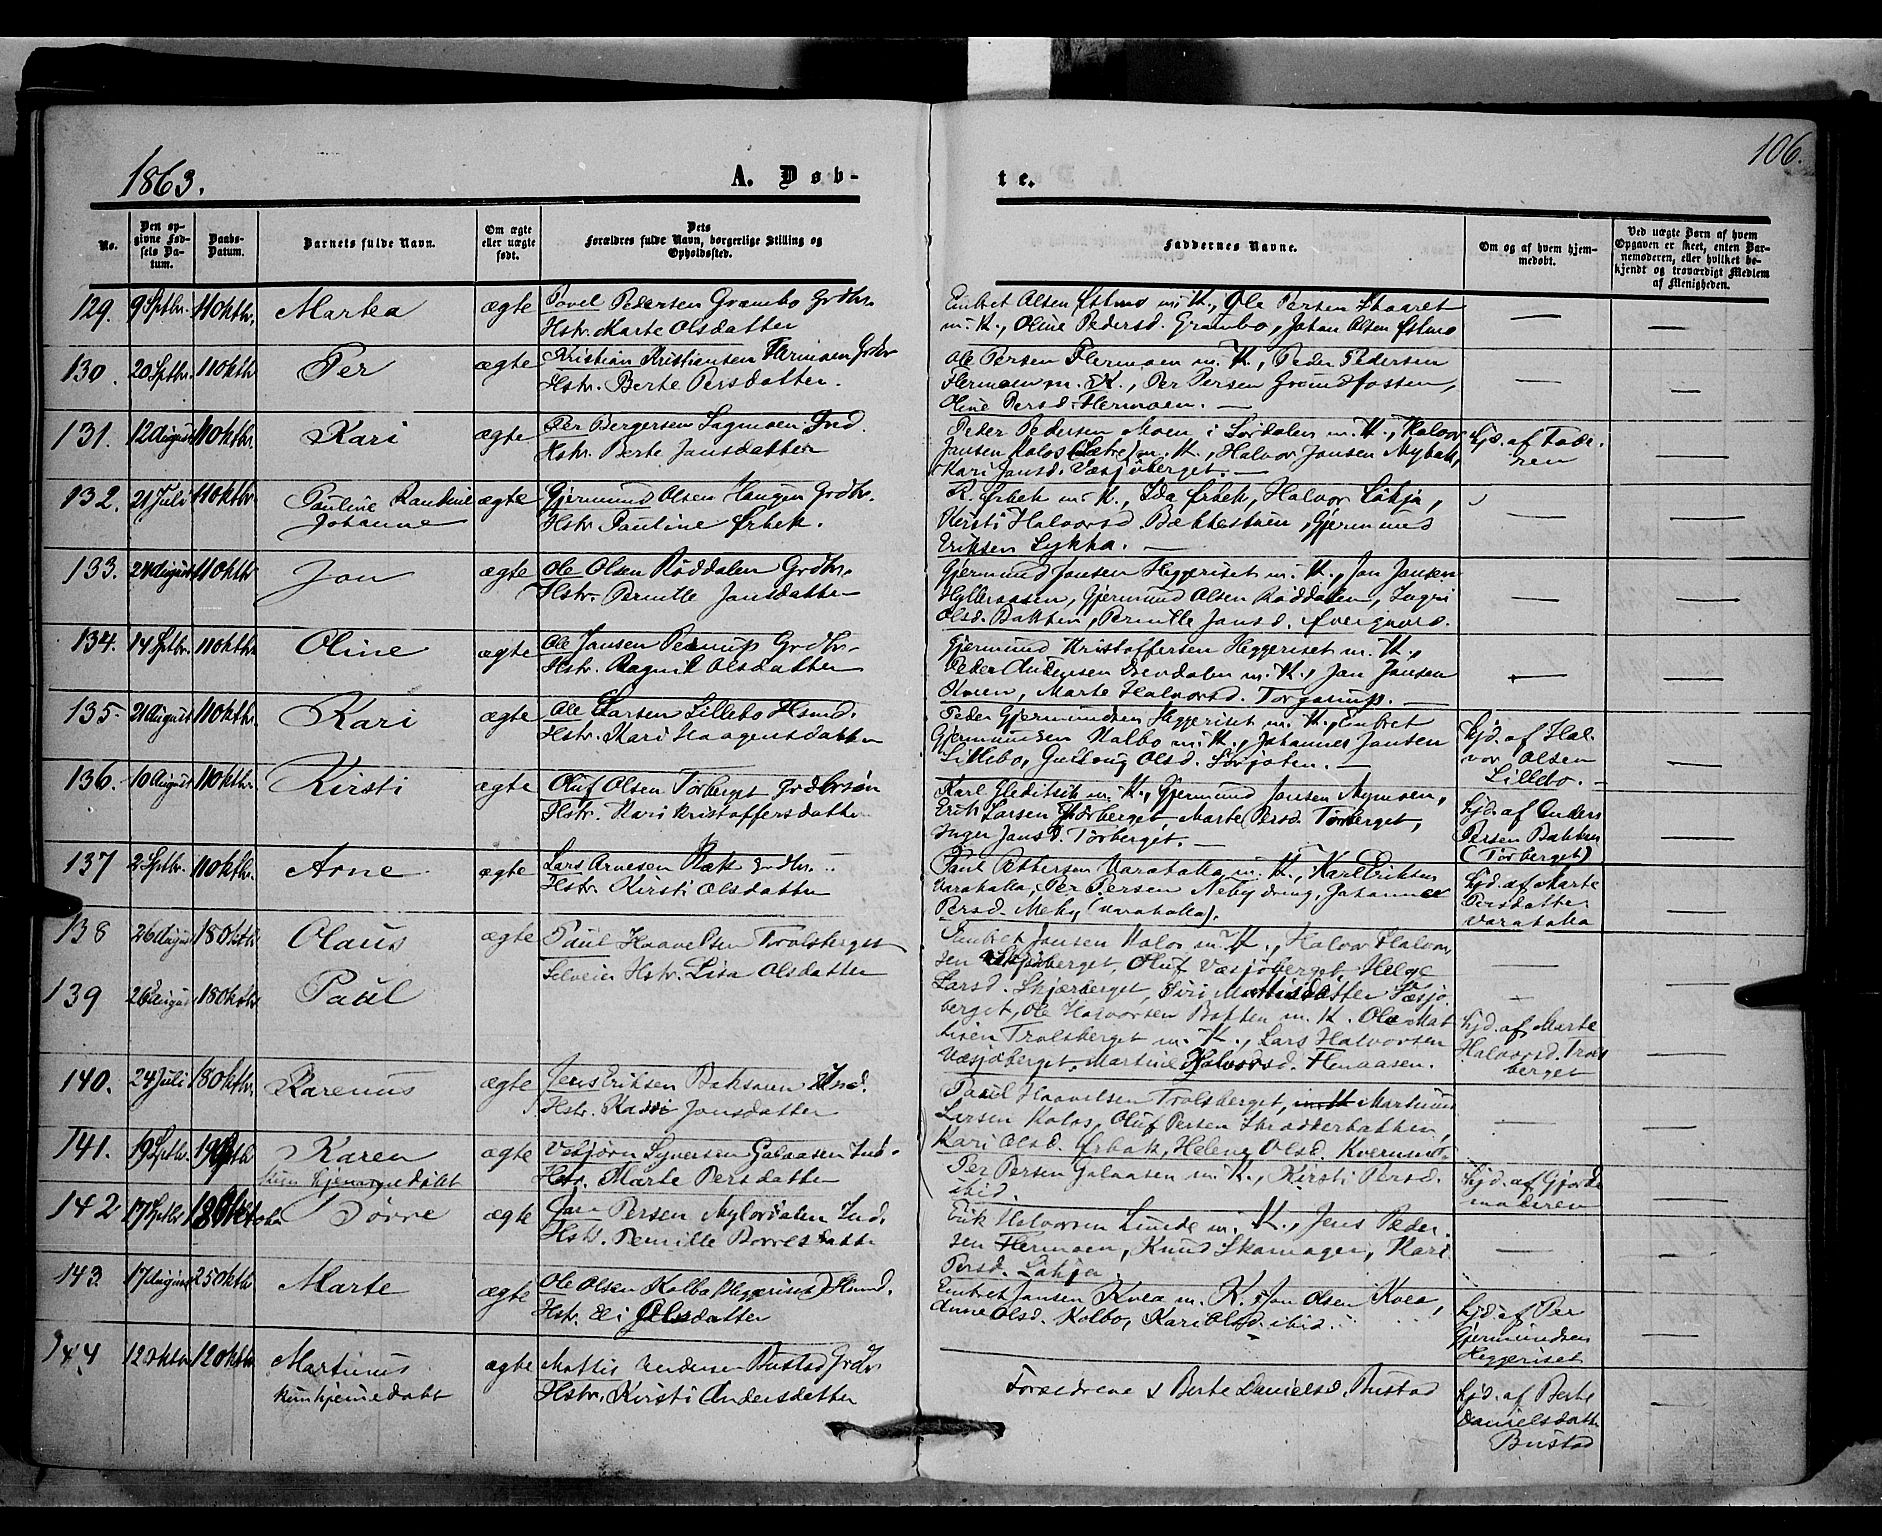 106.
1863.
A. Døb-
te.
No.
Den opgivne Fødsels Datum.
Daabs-Datum.
Barnets fulde Navn.
Om ægte eller uægte født.
Dets Forældres fulde Navn, borgerlige Stilling og Opholdssted.
Faddernes Navne.
Om og af hvem hjemmedøbt.
Ved uægte Børn af hvem Opgaven er skeet, enten Barnemoderen, eller hvilket bekjendt og troværdigt Medlem af Menigheden.
129. 9 Septbr. 11 Oktbr. Martea ægte Povel Pedersen Grambo Grdbr.
Hstr. Marte Olsdatter
Embret Olsen Østmo m. K., Ole Persen Skaaret
m. K., Oline Pedersd. Grambo, Johan Olsen Østmo — —
130. 20 Septbr. 11 Oktb Per ægte Kristian Kristiansen Flermoen Grdbr
Hstr. Berte Persdatter.
Ole Persen Flermoen m. K., Peder Pedersen
Flermoen m. K., Per Persen Grundfossen,
Oline Persd. Flermoen. — — —
131. 12 August 11 Oktbr. Kari ægte Per Bergersen Sagmoen Ind.
Hstr. Berte Jonsdatter
Peder Pedersen Moen i Sørdalen m. K., Halvor
Jonsen Kolos (Sætre) m. K., Halvor Jonsen Nybak,
Kari Jonsd. Væsjøberget. —
Hjd. af Faderen —
132. 21 Juli 11 Oktbr Pauline Randine
Johanne ægte Gjermund Olsen Haugen Grdbr.
Hstr. Pauline Ørbek.
R. Ørbek m. K., Ida Ørbek, Halvor Løkja,
Kersti Halvorsd. Bækkestuen, Gjermund
Eriksen Lykkja. — — —
133. 24 August 11 Oktb Jon ægte Ole Olsen Røddalen Grdbr.
Hstr. Pernille Jonsdatter
Gjermund Jonsen Heggeriset m. K., Jon Jonsen
Hylleraasen, Gjermund Olsen Røddalen, Ingri
Olsd. Bakken, Pernille Jonsd. Øvergaard. — —
134. 14 Septbr. 11 Oktbr Oline ægte Ole Jonsen Grdbr.
Hstr. Ragnil Olsdatter
Gjermund Kristoffersen Heggeriset m. K.,
Peder Andersen Drevdalen m. K., Jon Jonsen
Kvien, Marte Halvorsd. Torgarup. — — —
135. 21 August 11 Oktbr. Kari ægte Ole Larsen Lillebo Hsmd.
Hstr. Kari Haagensdatter
Peder Gjermundsen Heggeriset m. K., Embret
Gjermundsen Kolbo m. K., Johannes Jonsen
Lillebo, Gulbrug Olsd. Sørjoten. —
Hjd. af Halvor Olsen
Lillebo. — —
136. 10 August 11 Oktbr. Kirsti ægte Oluf Olsen Tørberget Grdbrsøn
Hstr. Kari Kristoffersdatter
Karl Gleditsch m. K., Gjermund Jonsen Nymoen,
Erik Larsen Tørberget, Marte Persd. Tørberget,
Inger Jonsd. Tørberget. —
Hjd. af Anders
Persen Bakken
(Tørberget) —
137 2 Septbr. 11 Oktbr. Arne ægte Lars Arnesen Grdbr.
Hstr. Kirsti Olsdatter
Paul Ottersen Varaholla m. K., Karl Eriksen
Varaholla, Per Persen Nebydreng, Johanne
Persd. Neby (Varaholla).
Hjd. af Marte
Persdatter
Varaholla —
138 26 August 18 Oktb. Olaus ægte Paul Haavelsen Trolsberget
Selveier Hstr. Lisa Olsdatter
Embret Jonsen Kolos m. K., Halvor Halvorsen
Skjæberget, Oluf Væsjøberget, Helge
Larsd. Skjærberget, Siri Mathisdatter Væsjøberget, — —
139 26 August 18 Oktbr Paul
Ole Halvorsen Baften m. K. Ole Mathisen
Trolsberget m. K., Lars Halvorsen
Væsjøberget, Martine Halvorsd. Flenaasen.
Hjd. af Marte
Halvorsd. Trolsberget —
140. 24 Juli 18 Oktbr. Karenus ægte Jens Eriksen Ind.
Hstr. Jonsdatter
Paul Haavelsen Trolsberget, Martinus
Larsen Kolos, Oluf Persen Skradderbakken,
Kari Olsd. Ørbak, Helene Olsd. Kvernmo. — —
141. 19 Septbr. Karen
kun hjemmedøbt ægte Vebjørn Syversen Galaasen Ind.
Hstr. Marte Persdatter
Per Persen Galaasen m. K., Kirsti Persd.
ibid.
Hjd. af Gjordemoderen —
142 17 Septbr 18 Oktober Børre ægte Jon Persen Ind.
Hstr. Pernille Børresdatter
Erik Halvorsen Lunde m. K., Jens Pedersen
Flermoen, Knud Skomager, Kari
Persd. Løkja. — —
143. 17 August 25 Oktbr Marte ægte Ole Olsen Kolbo (Heggeriset) Hsmd.
Hstr. Eli Olsdatter
Embret Jonsen Kvea m. K. Jon Olsen Kvea,
Anne Olsd. Kolbo, Kari Olsd. ibid.
Hjd. af Per
Gjermundsen
Heggeriset —
144 12 Oktbr 12 Oktbr Martinus
kun hjemmedøbt ægte Mattis Andersen Bustad Grdbr
Hstr. Kirsti Andersdatter
Forældrene & Berte Danielsd. Bustad
Hjd. af Berte
Danielsdatter
Bustad —